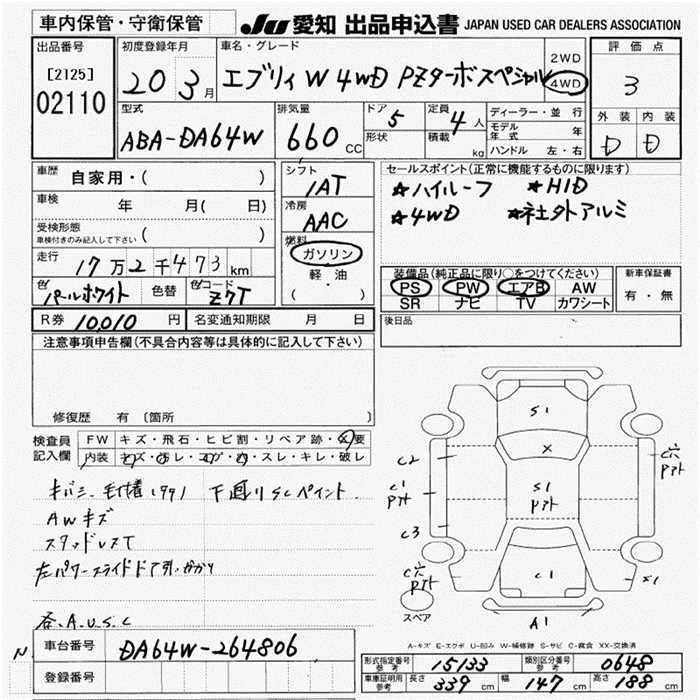 車内保管・守衛保管
JU 愛知 出品申込書 JAPAN USED CAR DEALERS ASSOCIATION
出品番号
[2125]
02110
初度登録年月
20 3月
車名・グレード
エブリィ W 4WD PZターボスペシャル
2WD
4WD
評価点
3
外装 内装
D D
型式
ABA-DA64W
排気量
660 CC
ドア 5
形状
定員 4 人
積載 kg
ディーラー・並行
モデル年式 年
ハンドル 左・右
車歴
自家用・( )
車検 年 月( 日)
受検形態
車検付きのみ記入して下さい ( )
走行 17万2千473km
色 パールホワイト
色替
色コード Z7T
シフト
IAT
冷房
AAC
燃料
ガソリン
軽・油
( )
セールスポイント(正常に機能するものに限ります)
★ハイルーフ ★HID
★4WD ★社外アルミ
装備品(純正品に限り○をつけてください)
PS PW エアB AW
SR ナビ TV カワシート
新車保証書
有・無
R券 10,010 円
名変通知期限 月 日
後日品
注意事項申告欄(不具合内容等は具体的に記入して下さい)
修復歴 有 〔箇所
検査員記入欄
FW キズ・飛石・ヒビ割・リペア跡・X要
内装 キズ・汚レ・コゲ・穴・スレ・キレ・破レ
キバミ、毛付着 下廻りSCペイント
AWキズ
スタッドレスT
左パワースライドドア引っかかり
S1
X
S1
C2
C1
C3
C1
S1
A1
スペア
A-キズ E-エクボ U-凹み W-補修跡 S-サビ C-腐食 XX-交換済
車台番号 DA64W-264806
登録番号
形式指定番号 参考 15133
類別区分番号 参考 0648
車庫証明用 参考 長さ 339 cm 幅 147 cm 高さ 188 cm